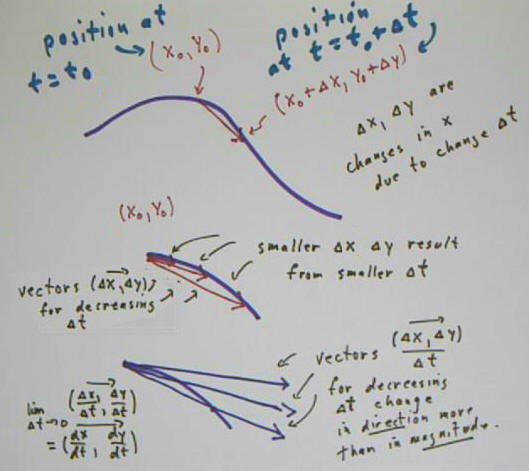 position at
t = t₀
(x₀, y₀)
position
at t = t₀ + Δt
(x₀ + Δx, y₀ + Δy)
Δx, Δy are
changes in x
due to change Δt
(x₀, y₀)
smaller Δx Δy result
from smaller Δt
vectors (Δx, Δy),
for decreasing
Δt
vectors (Δx, Δy) / Δt
for decreasing
Δt change
in direction more
than in magnitude.
lim Δt→0 (Δx/Δt, Δy/Δt)
= (dx/dt, dy/dt)